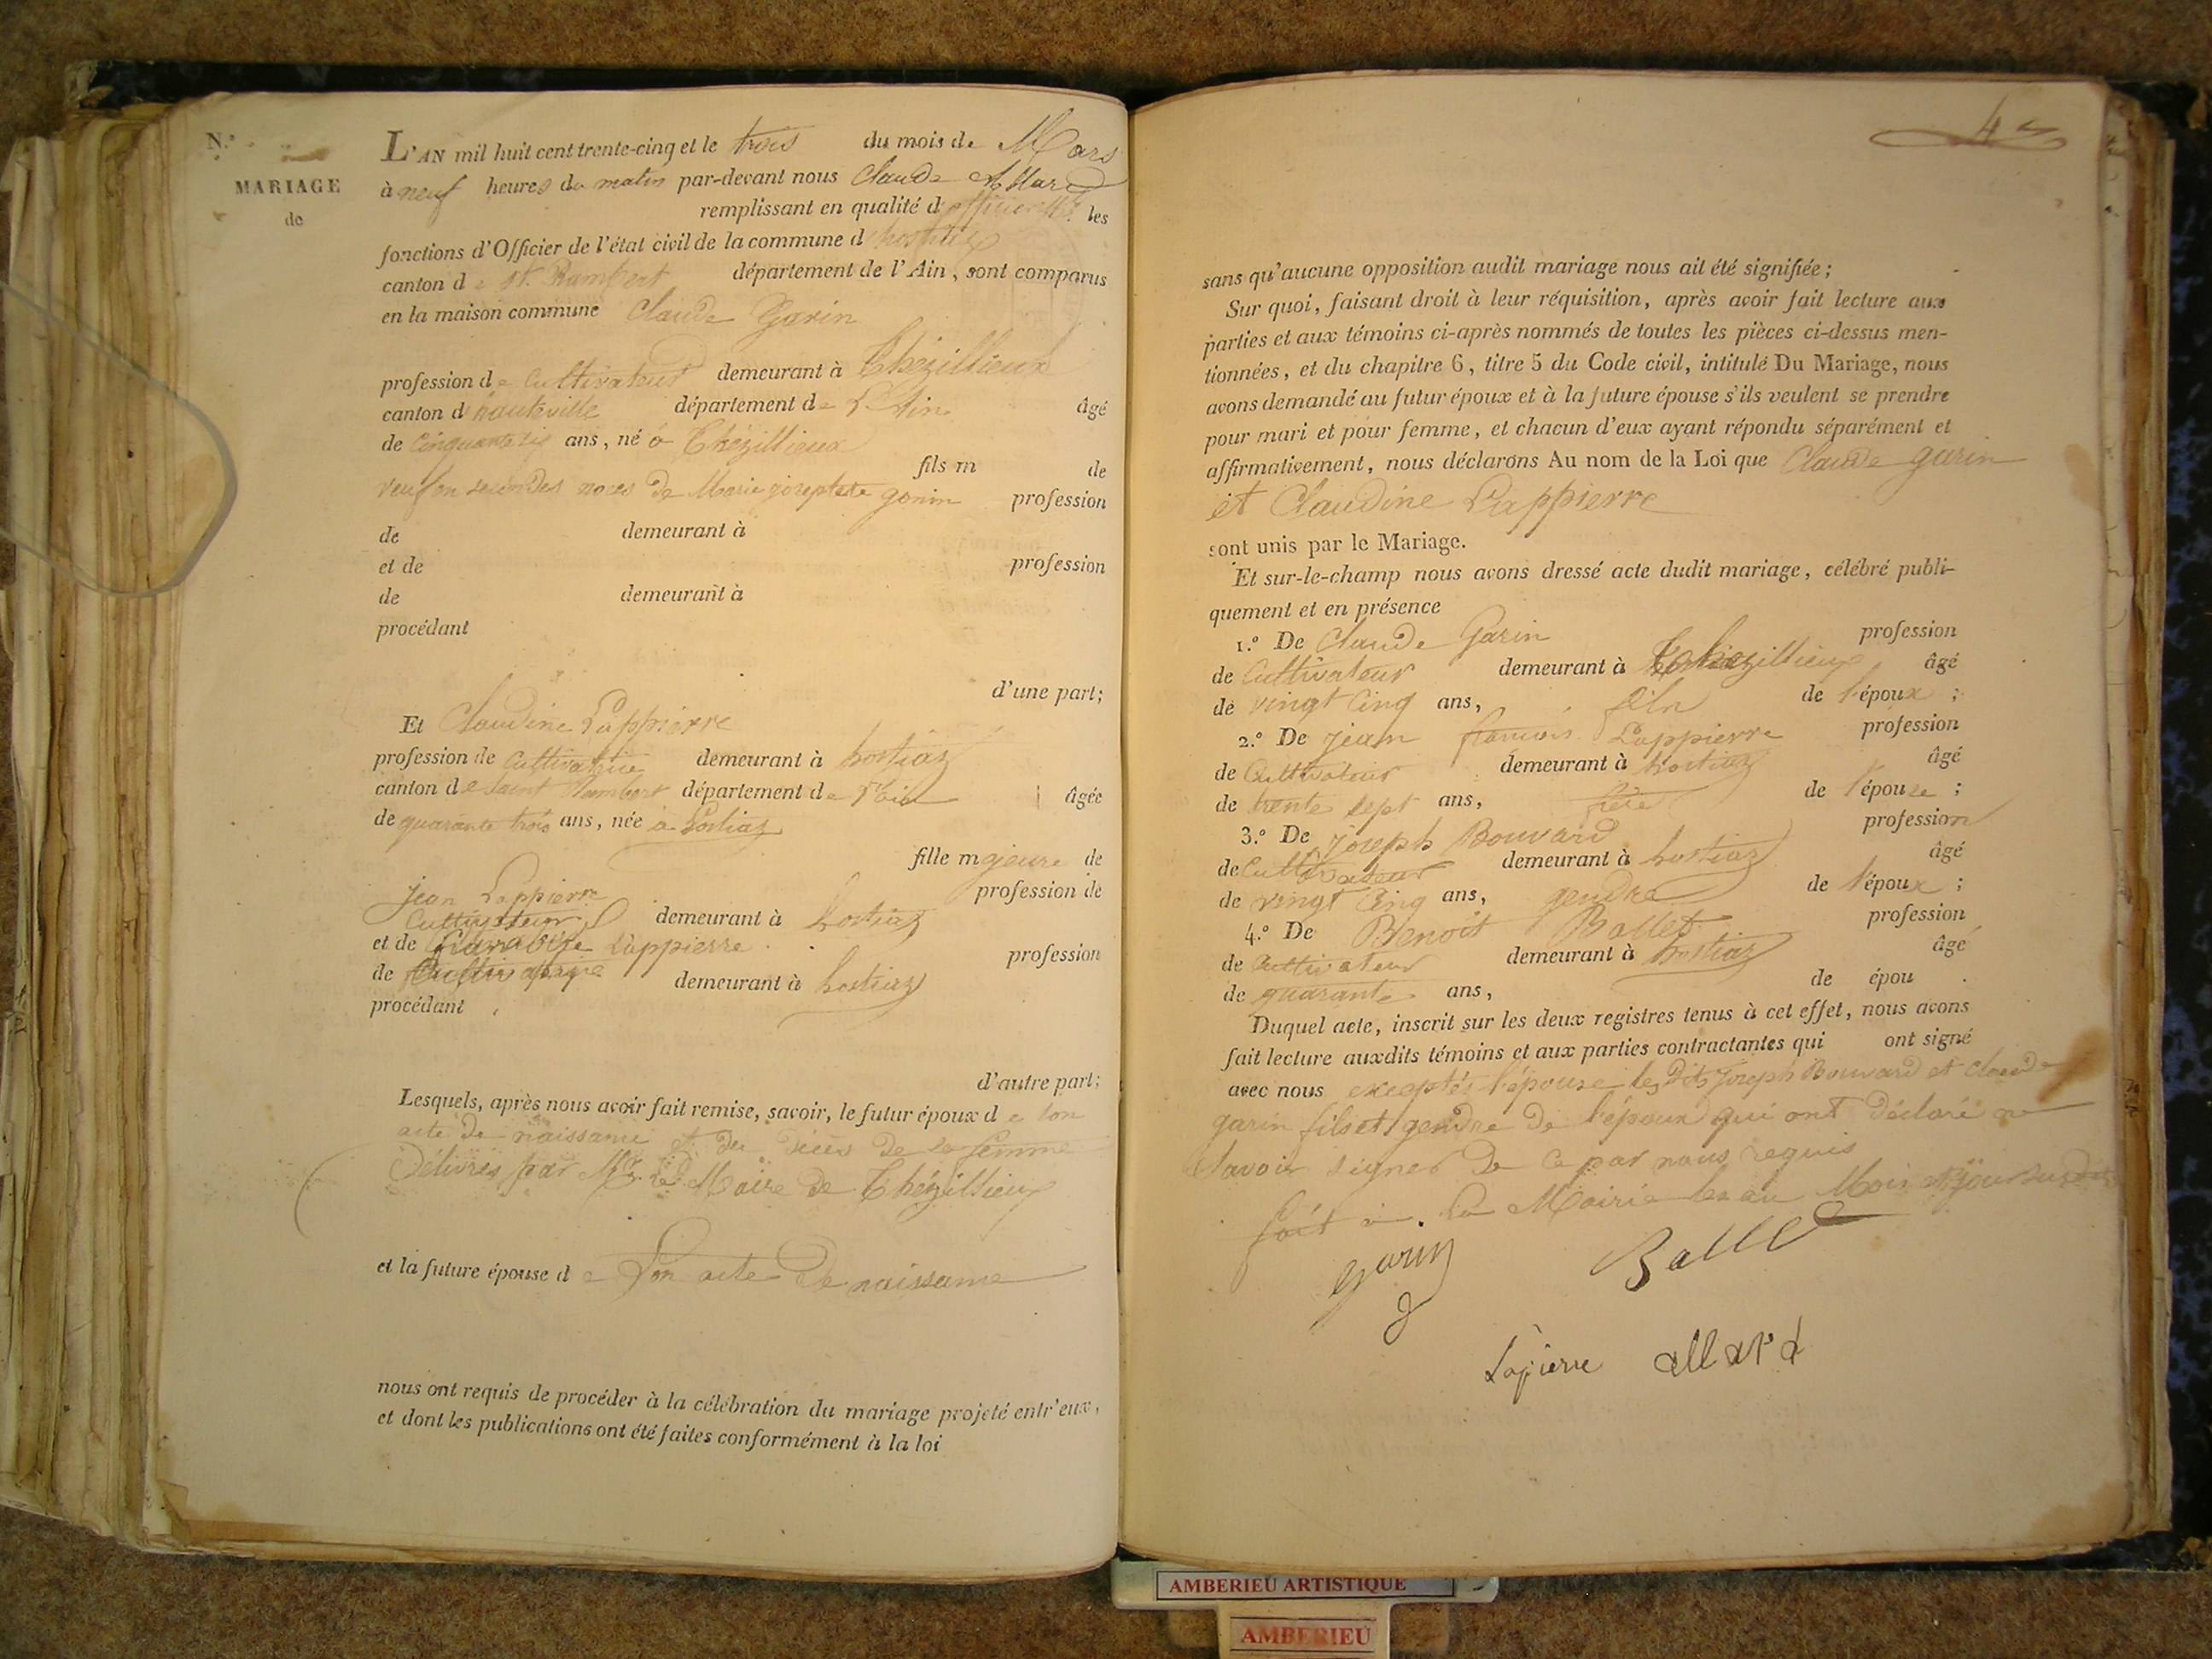 N.°
MARIAGE
de
L'AN mil huit cent trente-cinq et le trois du mois de Mars
à neuf heures du matin par-devant nous Claude Allard
remplissant en qualité d'officier les
fonctions d'Officier de l'état civil de la commune d hostiaz
canton de St. Rambert département de l'Ain, sont comparus
en la maison commune Claude Garin
profession de Cultivateur demeurant à Thézillieux
canton d hauteville département de L'Ain âgé
de Cinquante six ans, né à Thézillieux
fils m de
veuf en secondes noces de Marie josephte gonin profession
de demeurant à
et de profession
de demeurant à
procédant
d'une part;
Et Claudine Lappierre
profession de Cultivatrice demeurant à hostiaz
canton de Saint Rambert département de l'ain âgée
de quarante trois ans, née à hostiaz
fille majeure de
jean Lappierre profession de
Cultivateur demeurant à hostiaz
et de Lappierre profession
de Cultivatrice demeurant à hostiaz
procédant
d'autre part;
Lesquels, après nous avoir fait remise, savoir, le futur époux de son
acte de naissance et du décès de sa femme
Délivrés par Mr. le Maire de Thézillieux
et la future épouse de Son acte de naissance
nous ont requis de procéder à la célébration du mariage projeté entr'eux,
et dont les publications ont été faites conformément à la loi
4
sans qu'aucune opposition audit mariage nous ait été signifiée;
Sur quoi, faisant droit à leur réquisition, après avoir fait lecture aux
parties et aux témoins ci-après nommés de toutes les pièces ci-dessus men-
tionnées, et du chapitre 6, titre 5 du Code civil, intitulé Du Mariage, nous
avons demandé au futur époux et à la future épouse s'ils veulent se prendre
pour mari et pour femme, et chacun d'eux ayant répondu séparément et
affirmativement, nous déclarons Au nom de la Loi que Claude garin
et Claudine Lappierre
sont unis par le Mariage.
Et sur-le-champ nous avons dressé acte dudit mariage, célébré publi-
quement et en présence
1.° De Claude Garin profession
de Cultivateur demeurant à Thezillieux âgé
de vingt Cinq ans, fils de l'époux;
2.° De jean francois Lappierre profession
de Cultivateur demeurant à hostiaz âgé
de trente sept ans, frère de l'épouse;
3.° De joseph Bouvard profession
de Cultivateur demeurant à hostiaz âgé
de vingt Cinq ans, gendre de l'époux;
4.° De Benoit Ballet profession
de Cultivateur demeurant à hostiaz âgé
de quarante ans, de épou .
Duquel acte, inscrit sur les deux registres tenus à cet effet, nous avons
fait lecture auxdits témoins et aux parties contractantes qui ont signé
avec nous exceptés l'épouse les dits joseph Bouvard et claude
garin fils et gendre de l'époux qui ont déclaré ne
savoir signer de ce par nous requis
fait à la Mairie les an Mois et jour susdits
garin Ballet
Lapierre allard
AMBERIEU ARTISTIQUE
AMBERIEU